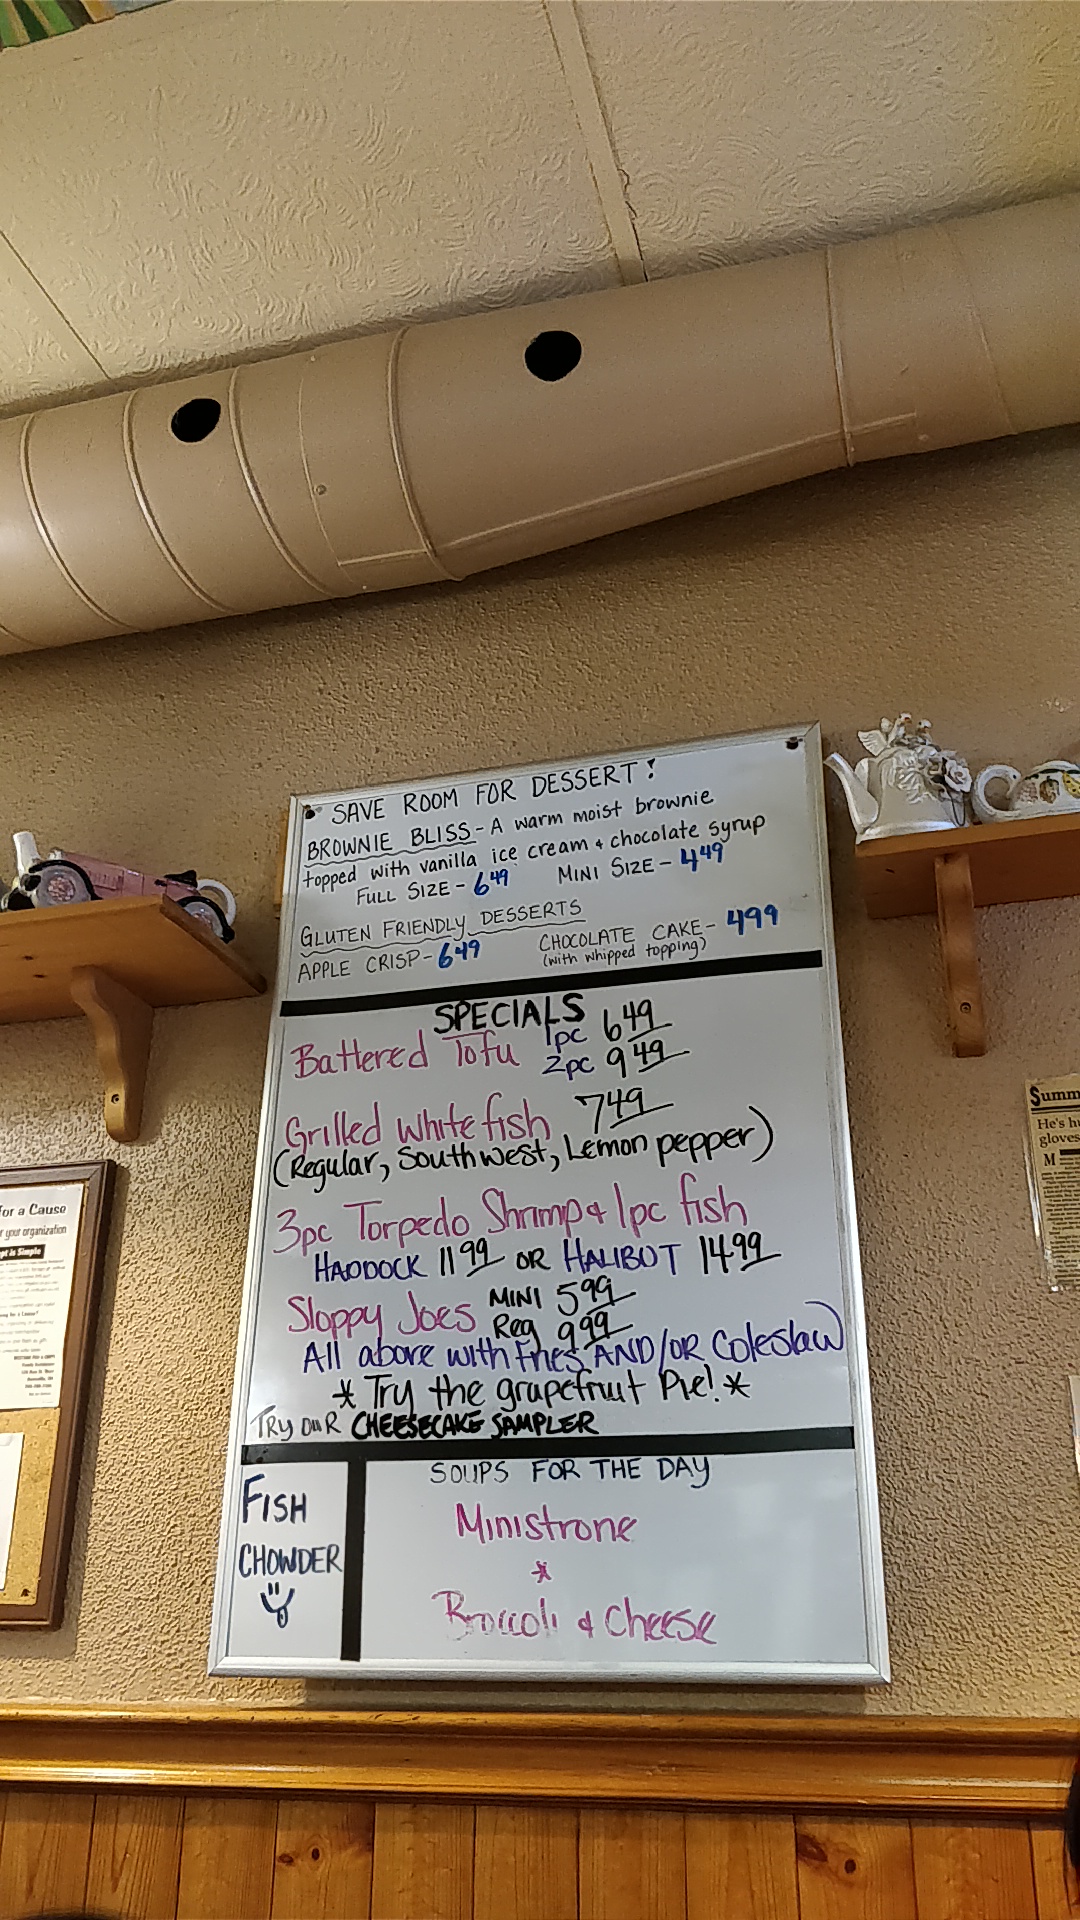 SAVE ROOM FOR DESSERT!
BROWNIE BLISS - A warm moist brownie
topped with vanilla ice cream & chocolate syrup
FULL SIZE - 6 49 MINI SIZE - 4 49
GLUTEN FRIENDLY DESSERTS
APPLE CRISP - 6 49 CHOCOLATE CAKE - 4 99
(with whipped topping)
SPECIALS
Battered Tofu 1pc 6 49
2pc 9 49
Grilled white fish 7 49
(Regular, Southwest, Lemon pepper)
3pc Torpedo Shrimp & 1pc fish
HADDOCK 11 99 OR HALIBUT 14 99
Sloppy Joes MINI 5 99
Reg 9 99
All above with Fries AND/OR Coleslaw
* Try the grapefruit Pie! *
TRY OUR CHEESECAKE SAMPLER
FISH
CHOWDER
SOUPS FOR THE DAY
Ministrone
*
Broccoli & Cheese
for a Cause
your organization
pt is Simple
Summ
He's h
gloves
M